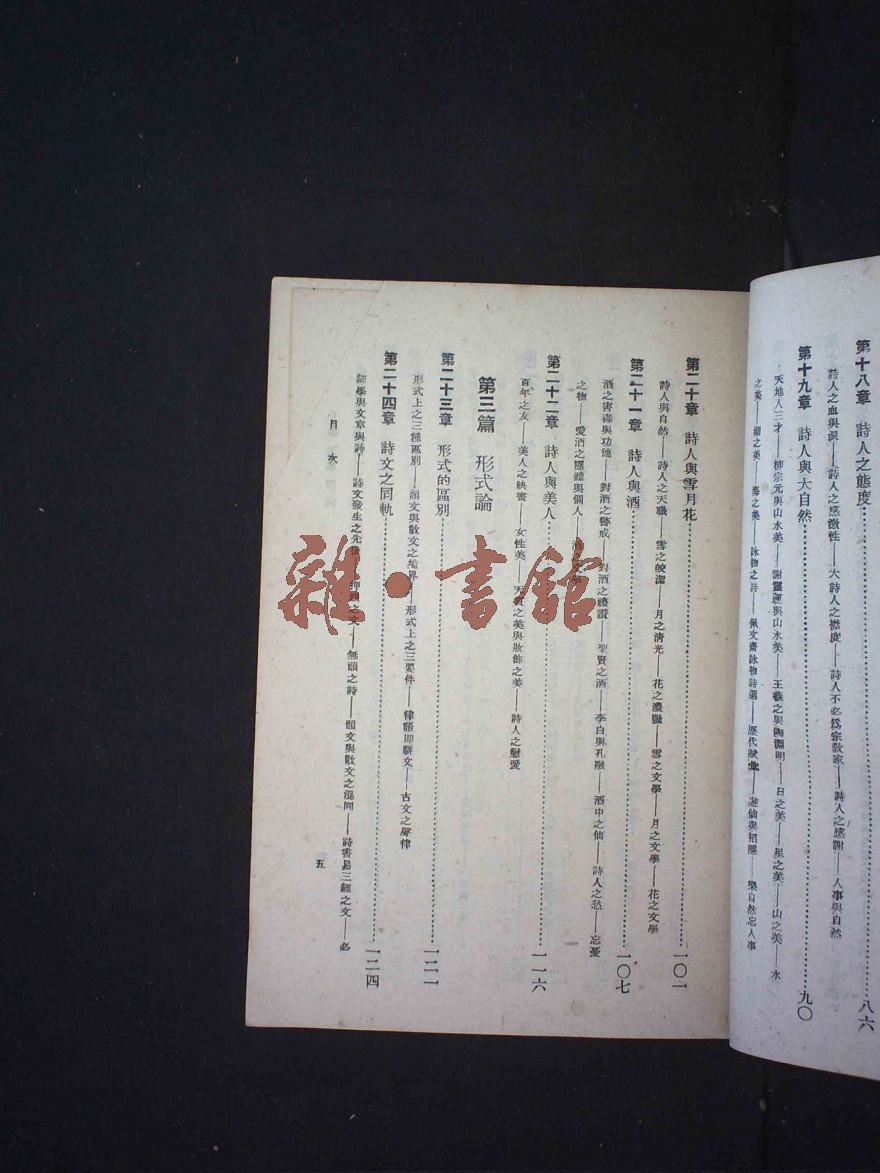 第十八章 詩人之態度……八六
詩人之血與淚——詩人之感激性——大詩人之襟度——詩人不必為宗教家——詩人之感謝——人事與自然
第十九章 詩人與大自然……九〇
天地人三才——柳宗元與山水美——謝靈運與山水美——王羲之與陶淵明——日之美——星之美——山之美——水
之美——湖之美——海之美——詠物之詩——佩文齋詠物詩選——歷代賦彙——遊仙與招隱——樂自然忘人事
第二十章 詩人與雪月花……一〇一
詩人與自然——詩人之天職——雪之皎潔——月之清光——花之濃豔——雪之文學——月之文學——花之文學
第二十一章 詩人與酒……一〇七
酒之害毒與功德——對酒之警戒——對酒之禮讚——聖賢之酒——李白與孔融——酒中之仙——詩人之愁——忘憂
之物——愛酒之團體與個人
第二十二章 詩人與美人……一一六
百年之友——美人之缺書——女性美——天質之美與妝飾之美——詩人之戀愛
第三篇 形式論
第二十三章 形式的區別……一二一
形式上之三種區別——韻文與散文之境界——形式上之三要件——律語即駢文——古文之聲律
第二十四章 詩文之同軌……一二四
經學與文章與詩——詩文發生之先後——押韻之文——無韻之詩——韻文與散文之混同——詩書易三經之文——必
目次
五
雜·書館